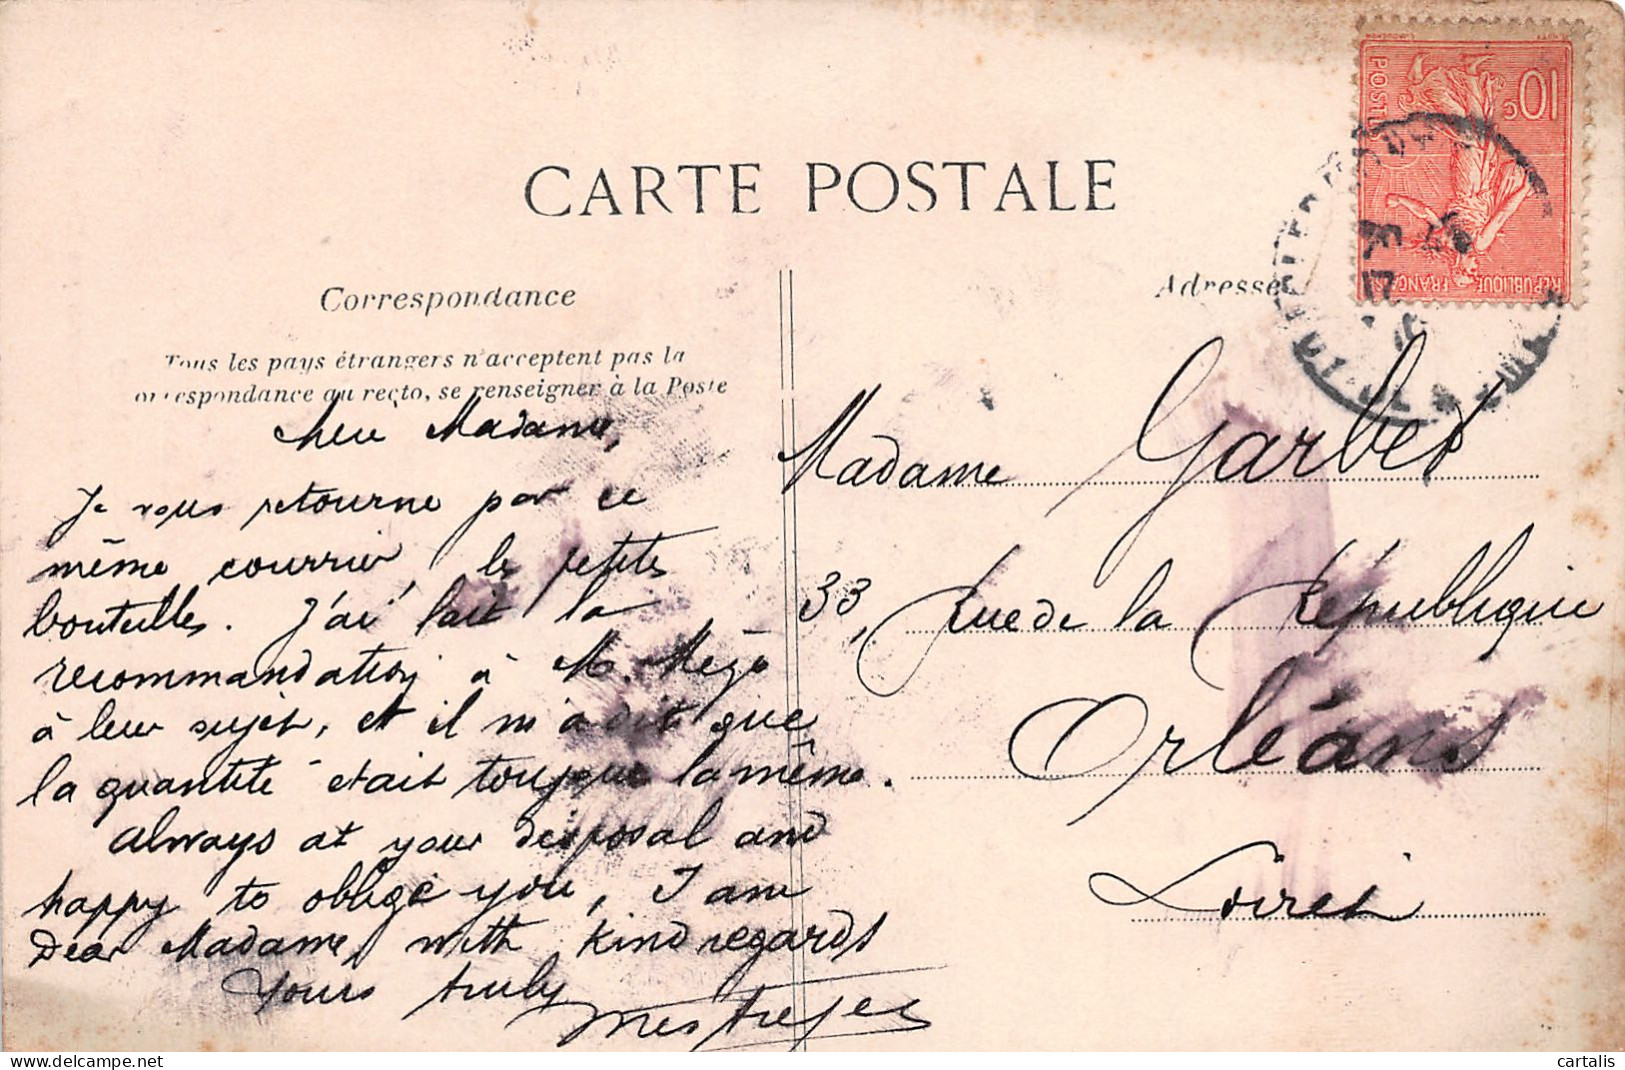 CARTE POSTALE
Correspondance
Tous les pays étrangers n'acceptent pas la
correspondance au recto, se renseigner à la Poste
Adresse
10c
POSTES
RÉPUBLIQUE FRANÇAISE
Chère Madame,
Je vous retourne par ce
même courrier, les petites
bouteilles. J'ai fait la
recommandation à M.
à leur sujet, et il m'a dit que
la quantité était toujours la même.
Always at your disposal and
happy to oblige you, I am
Dear Madame, with kind regards
Yours truly
Madame Garbet
33, Rue de la République
Orléans
Loiret
cartalis